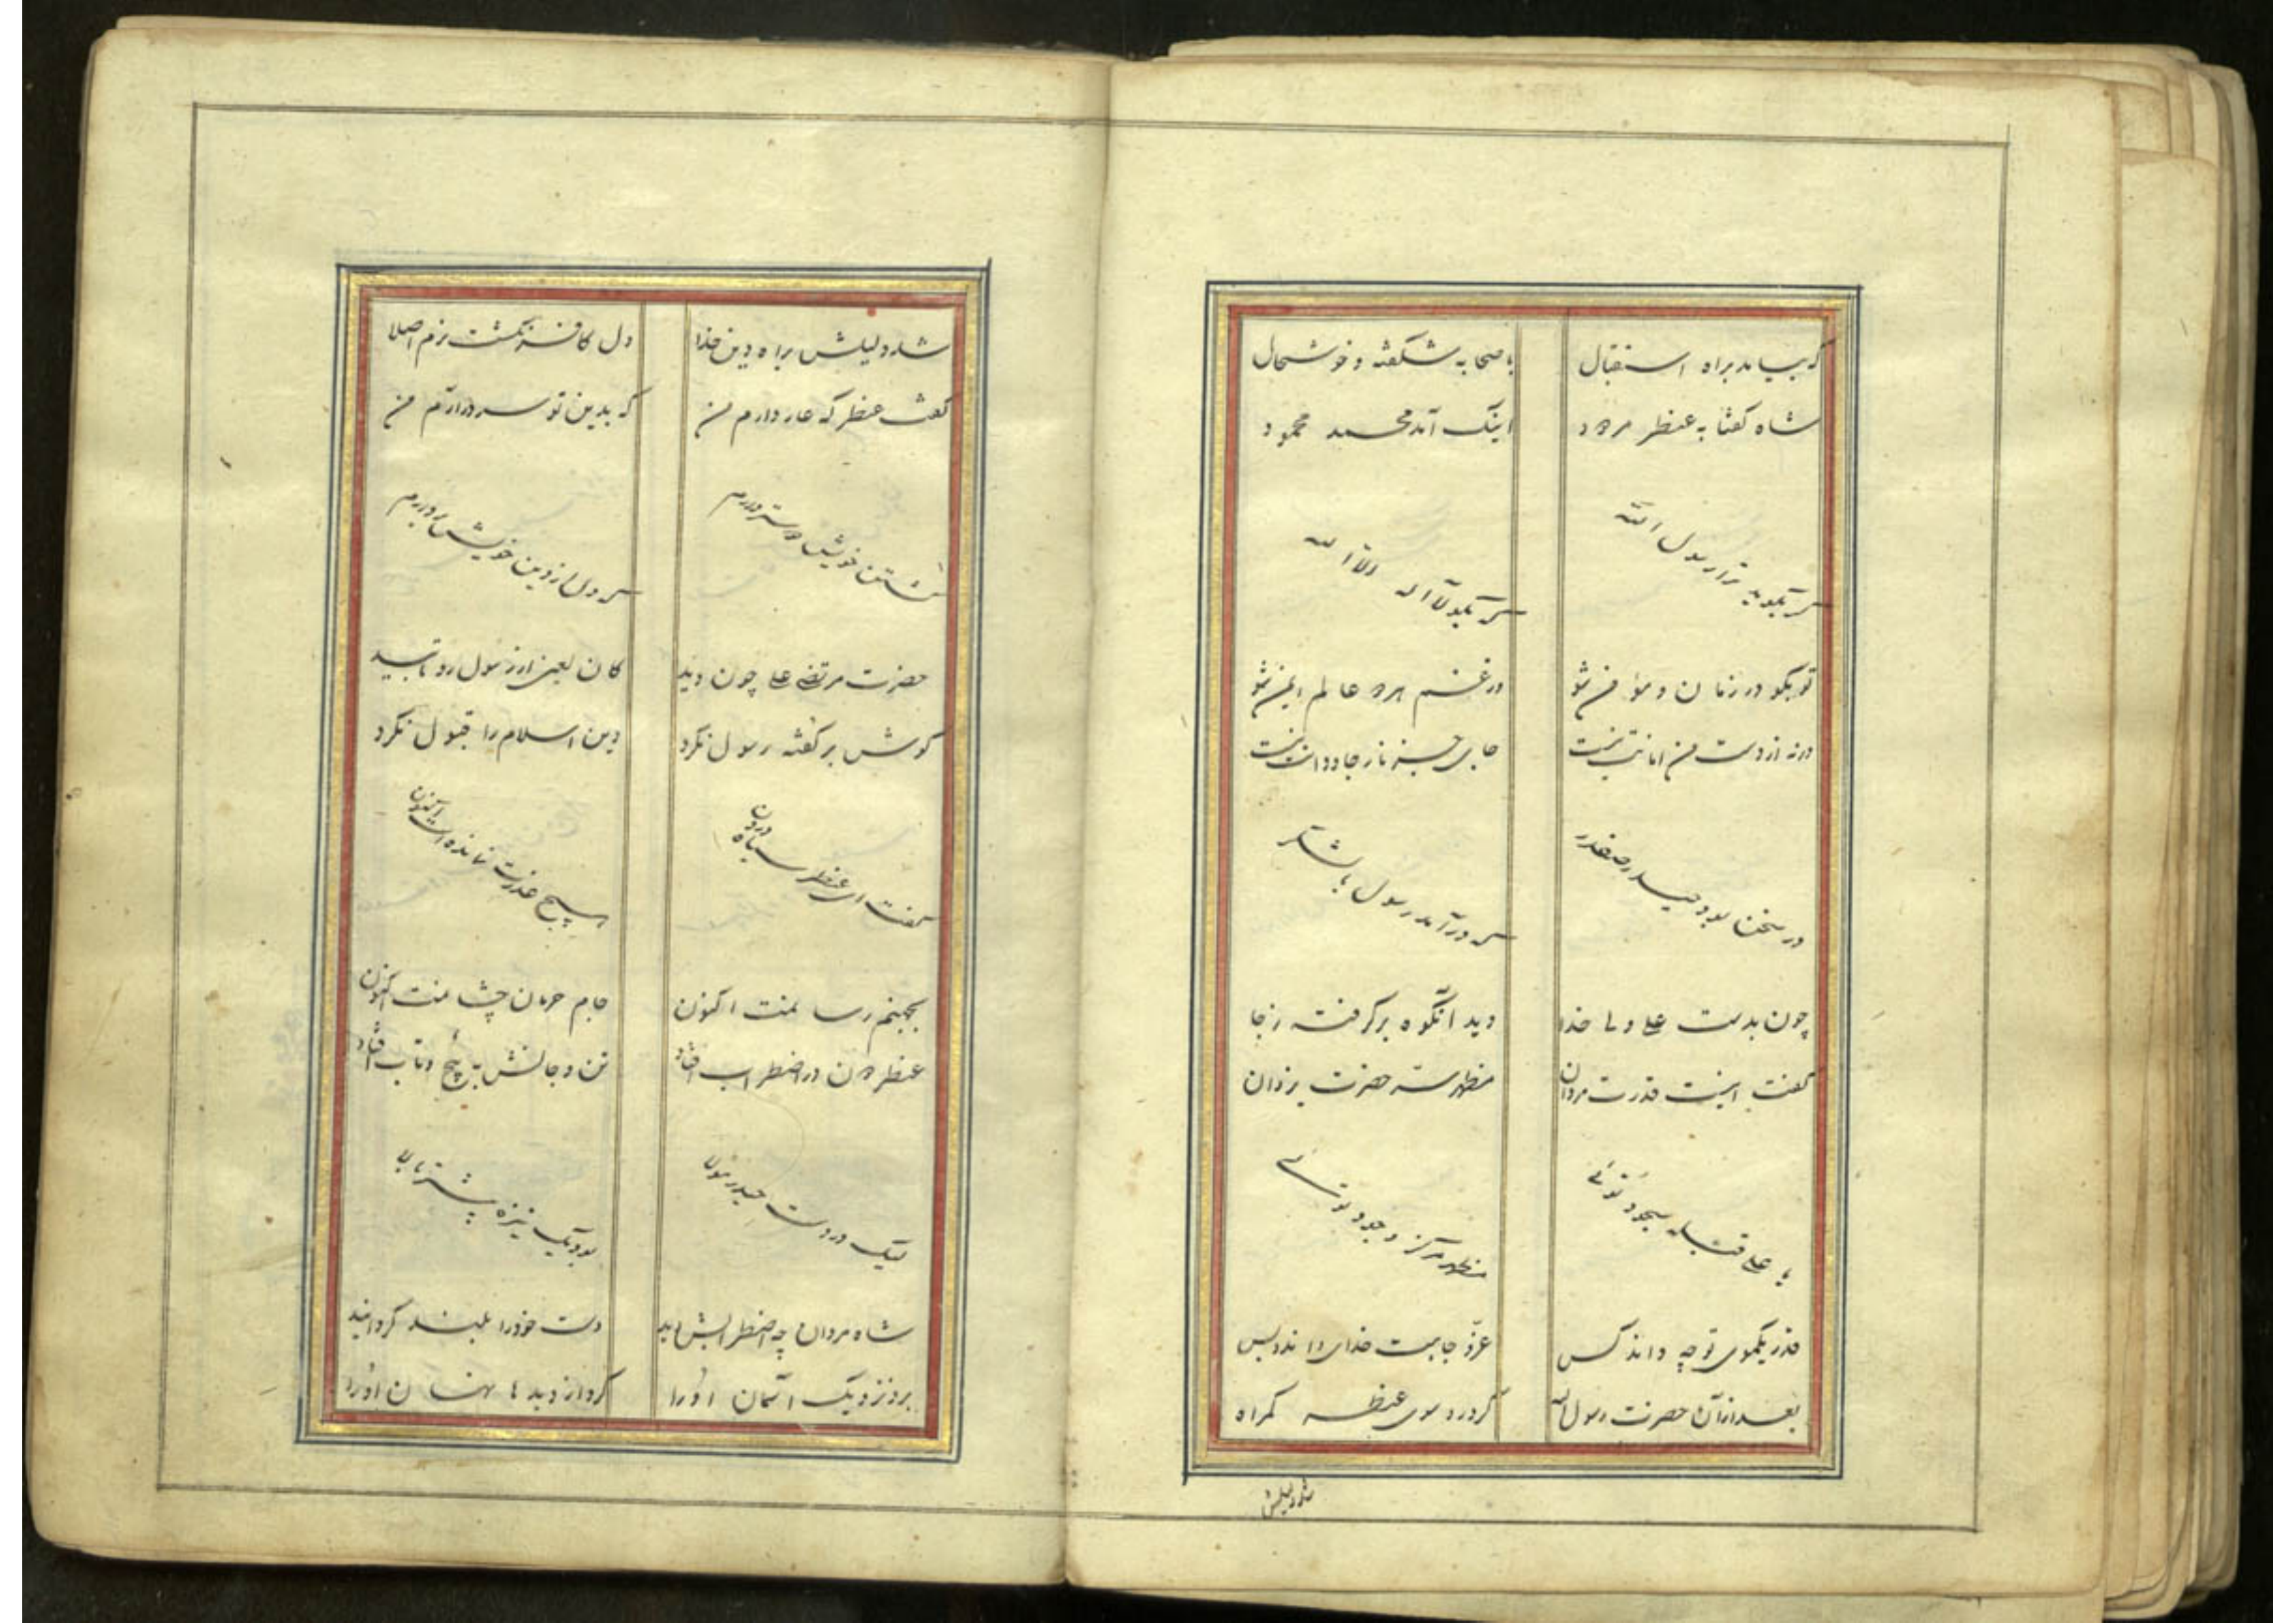 که بیامد براه استقبال با صحابه شکفته و خوشحال
شاه کفتا به عنطر مردود اینک آمد محمد محمود
کر بکوید ترا رسول الله کر بکو لا اله الا الله
تو بکو در زمان و مؤمن شو در غم هر دو عالم ایمن شو
ورنه از دست من امانت نیست جای جز نار جاودانت نیست
در سخن بود حیدر صفدر که درآمد رسول با لشکر
چون بدست علی ولی خدا دید آنکوه برکرفته ز جا
کفت اینست قدرت مردان مظهر حضرت یزدان
یا علی قبله سجود توئی مظهر مرکز وجود توئی
قدر یکموی تو چه داند کس عز و جاهت خدای داند و بس
بعد از آن حضرت رسول الله کرد رو سوی عنطر کمراه
شد دلیلش
شد دلیلش براه دین خدا دل کافر نکشت نرم اصلا
کفت عنطر که عار دارم من که بدین تو سر درآرم من
کشتن خویش دوستر دارم که دل از دین خویش بردارم
حضرت مرتضی علی چون دید کان لعین از رسول رو تابید
کوش بر کفته رسول نکرد دین اسلام را قبول نکرد
کفت ای عنطر سیاه درون هیچ عذرت نمانده است اکنون
بجهنم رسانمت اکنون جام حرمان چشانمت اکنون
عنطر دون در اضطراب افتاد تن و جانش به پیچ و تاب افتاد
لیک در دست حیدر مولا بود یک نیزه بیشتر بالا
شاه مردان چه اضطرابش دید دست خود را بلند کردانید
برد نزدیک آسمان او را کرد از دیدها نهان او را